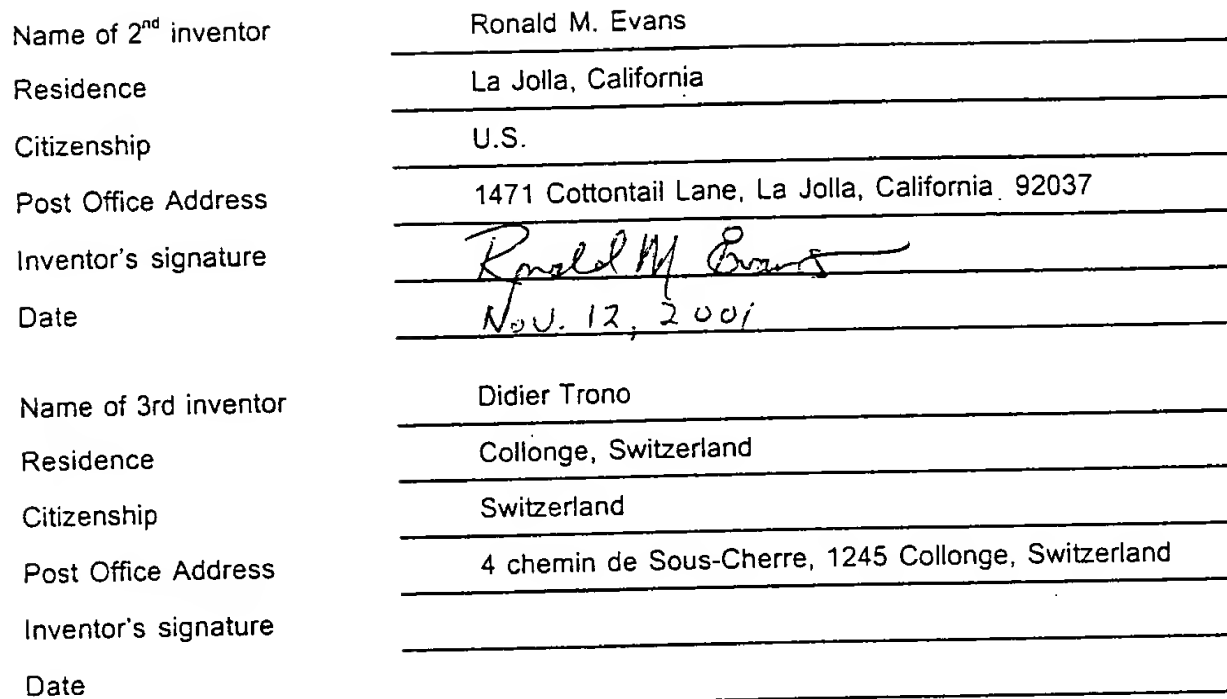 Name of 2nd inventor Ronald M. Evans
Residence La Jolla, California
Citizenship U.S.
Post Office Address 1471 Cottontail Lane, La Jolla, California 92037
Inventor's signature Ronald M Evans
Date Nov. 12, 2001
Name of 3rd inventor Didier Trono
Residence Collonge, Switzerland
Citizenship Switzerland
Post Office Address 4 chemin de Sous-Cherre, 1245 Collonge, Switzerland
Inventor's signature
Date